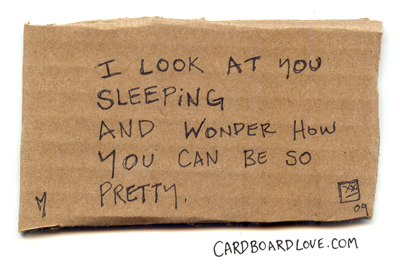 I LOOK AT YOU
SLEEPING
AND WONDER HOW
YOU CAN BE SO
PRETTY.
09
CARDBOARDLOVE.COM